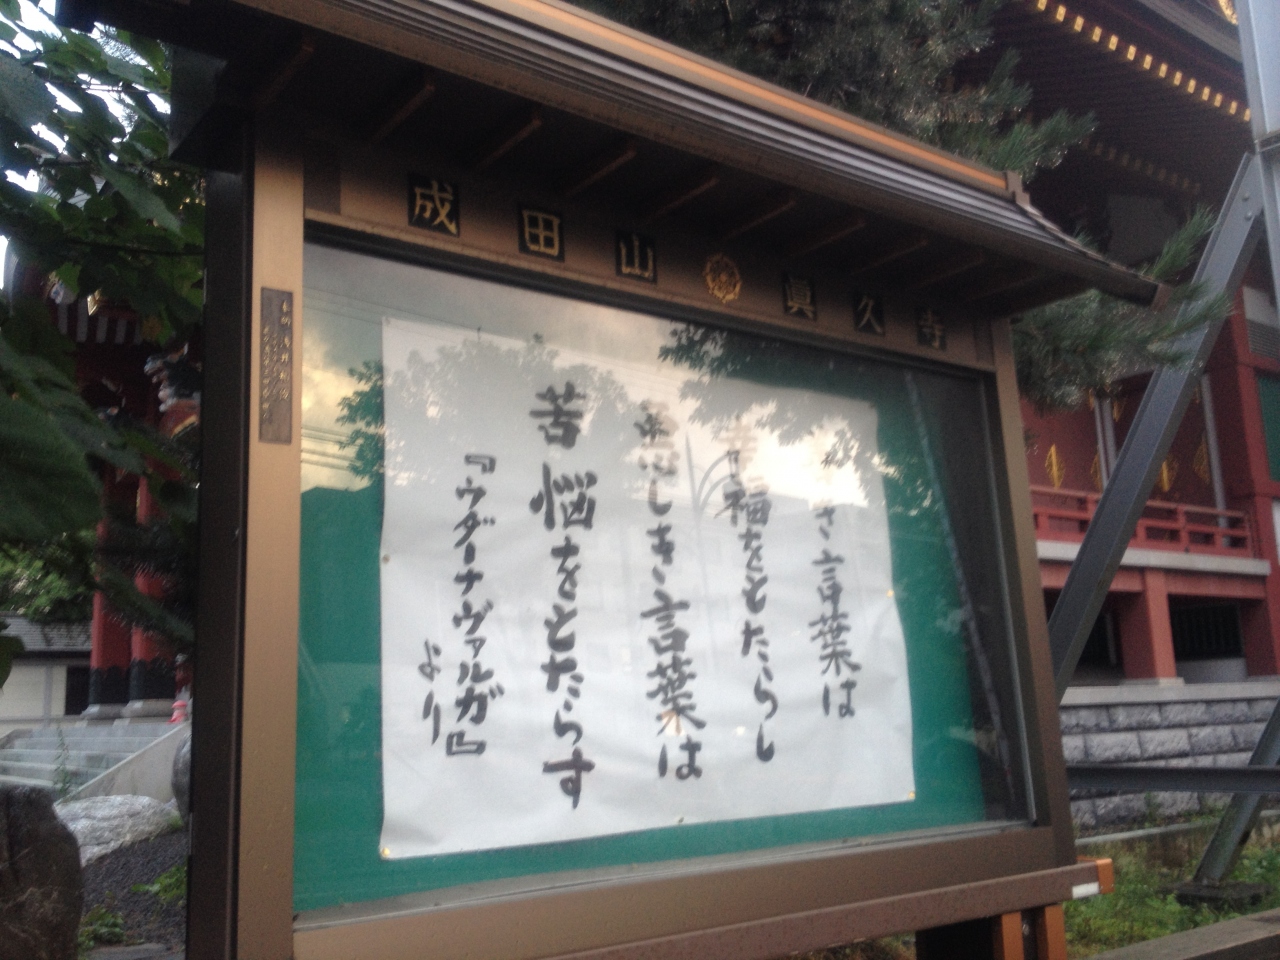 成田山 眞久寺
き言葉は
幸福をもたらし
悪しき言葉は
苦悩をもたらす
『ウダーナヴァルガ』
より
奉納